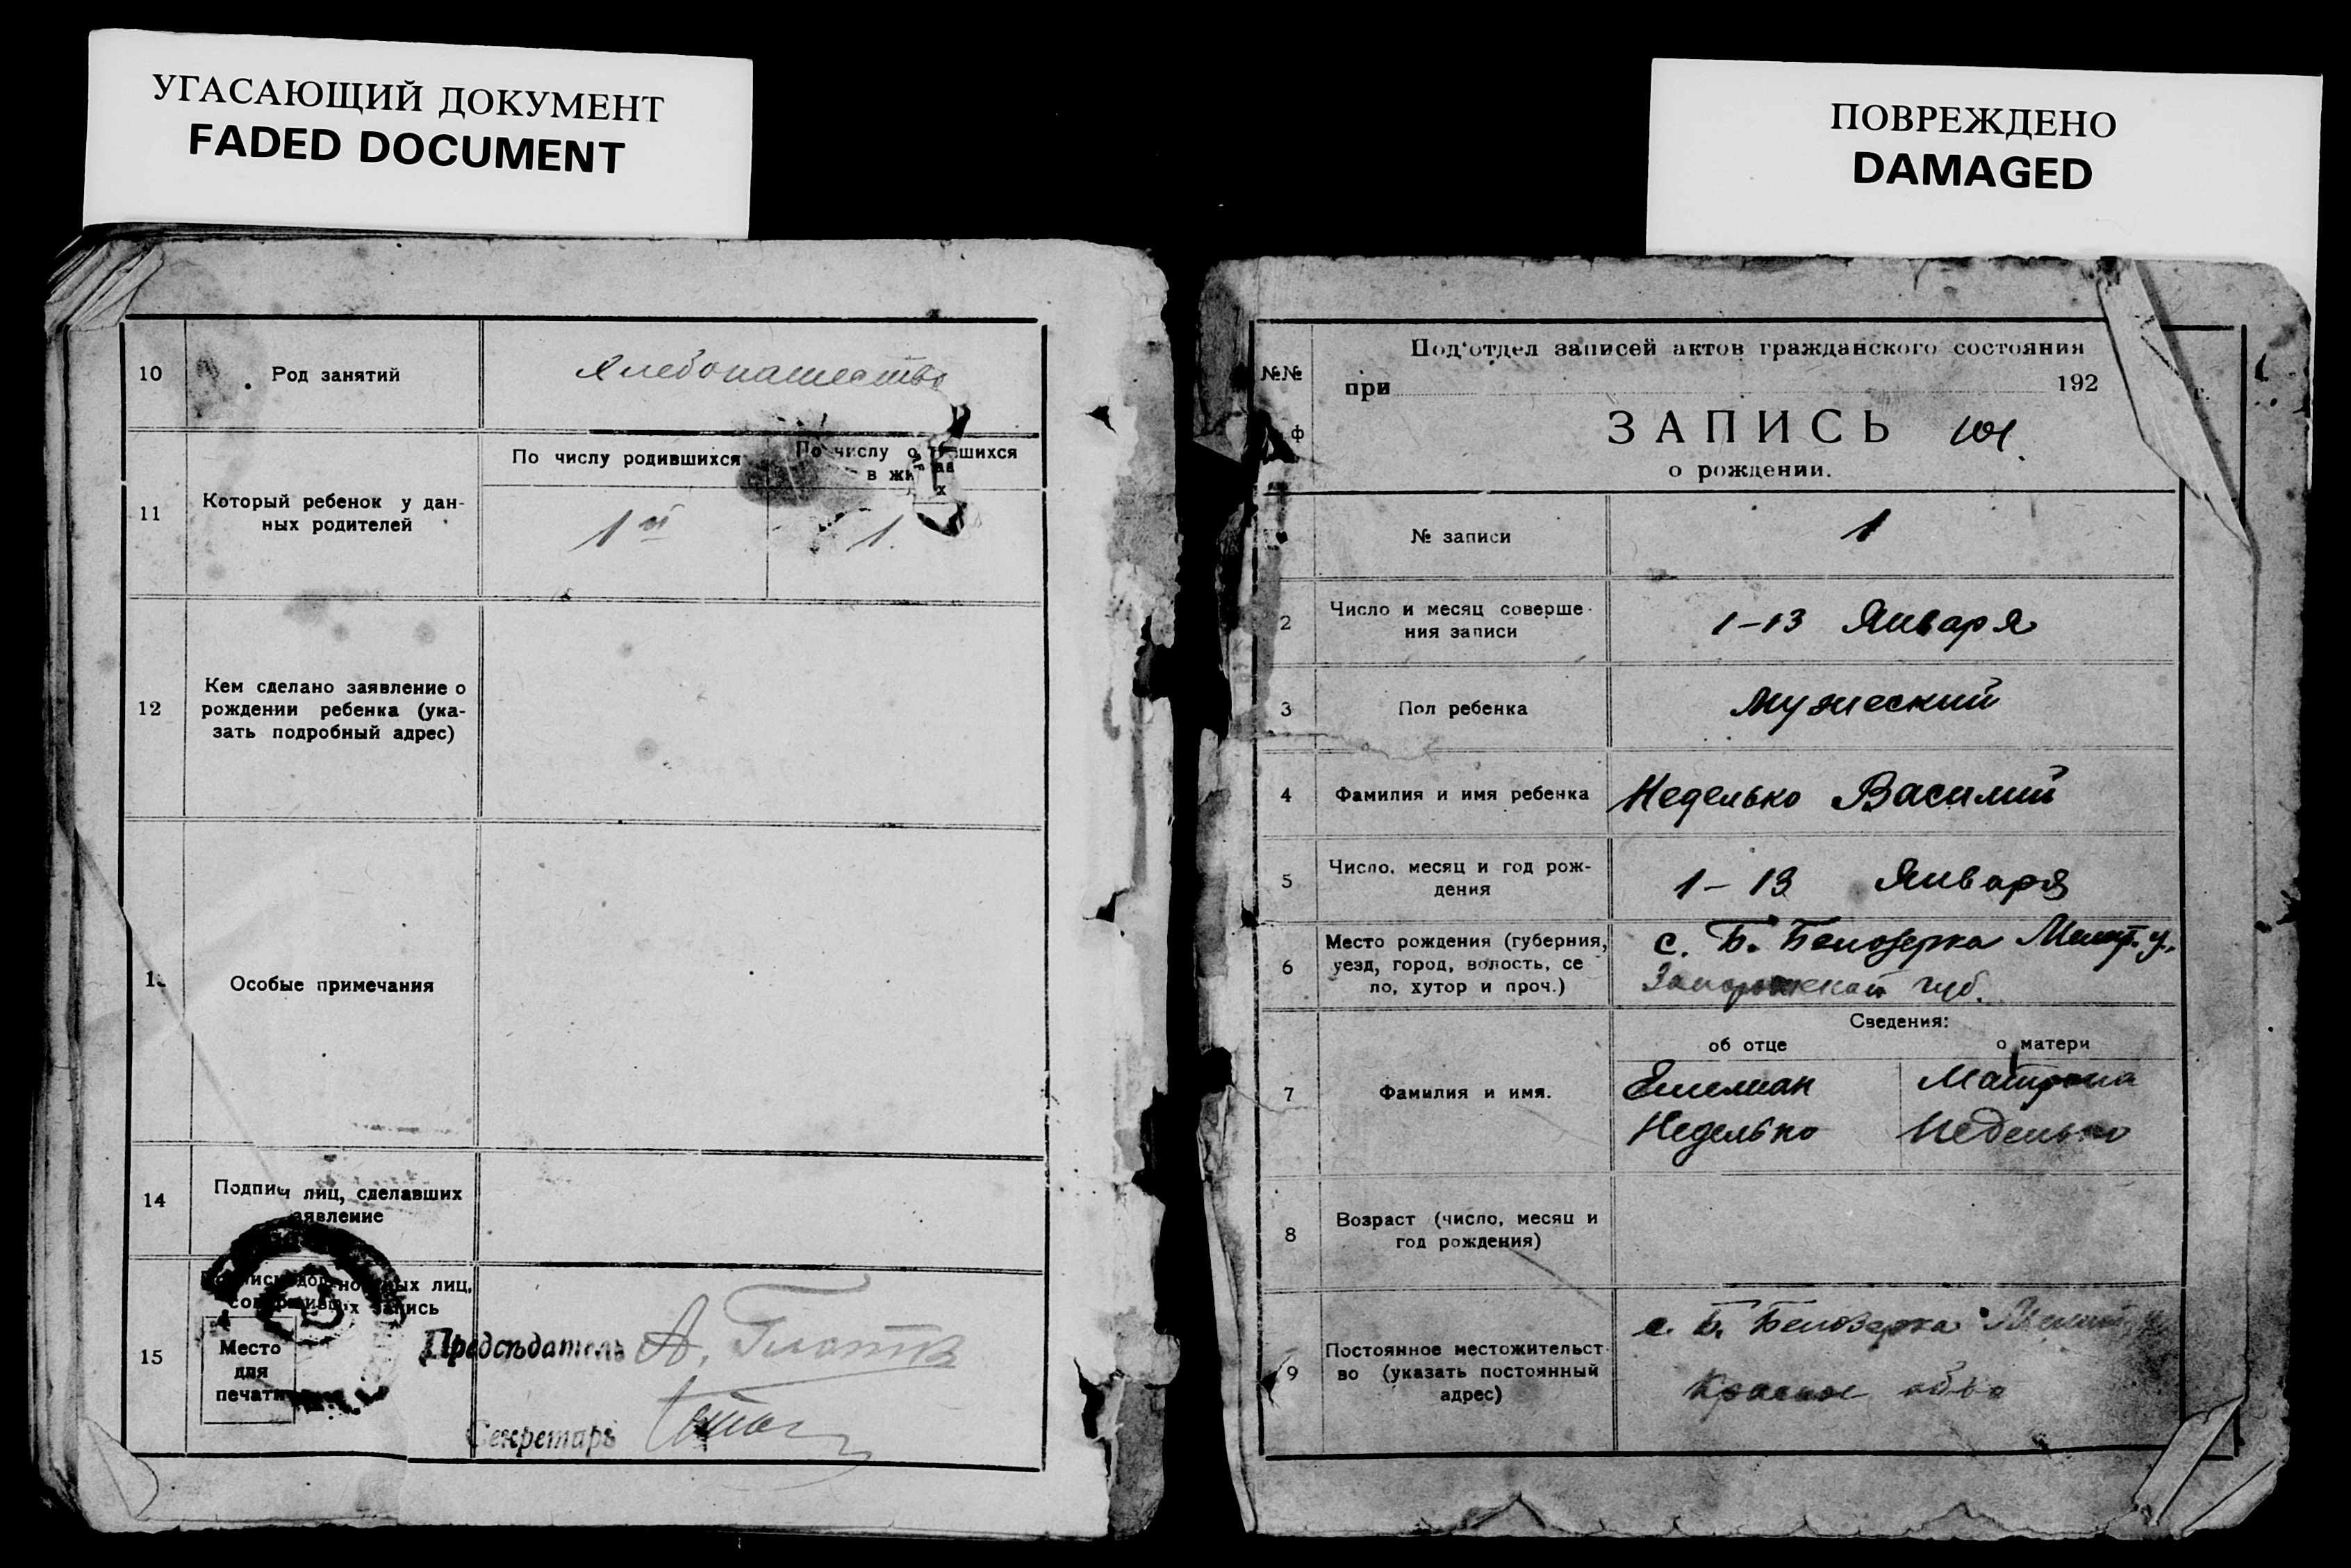 УГАСАЮЩИЙ ДОКУМЕНТ
FADED DOCUMENT
ПОВРЕЖДЕНО
DAMAGED
10
Род занятий
Хлебопашество
11
Который ребенок у дан-
ных родителей
По числу родившихся
По числу
шихся
в
1й
1.
12
Кем сделано заявление о
рождении ребенка (ука-
зать подробный адрес)
Особые примечания
14
Подписи лиц, сделавших
15
лиц,
запись
Место
для
печати
Предсѣдатель А.
Секретарь
№№
Под'отдел записей актов гражданского состояния
при 192 г.
ЗАПИСЬ
о рождении.
№ записи
1
2
Число и месяц соверше-
ния записи
1-13 Января
3
Пол ребенка
мужеский
4
Фамилия и имя ребенка
Неделько Василий
5
Число, месяц и год рож-
дения
1-13 Января
6
Место рождения (губерния,
уезд, город, волость, се
ло, хутор и проч.)
с. Б. Белозерка Мелит. у.
Запорожской губ.
Сведения:
об отце
о матери
7
Фамилия и имя.
Емелиан
Неделько
Матрона
Неделько
8
Возраст (число, месяц и
год рождения)
9
Постоянное местожительст-
во (указать постоянный
адрес)
с. Б. Белозерка